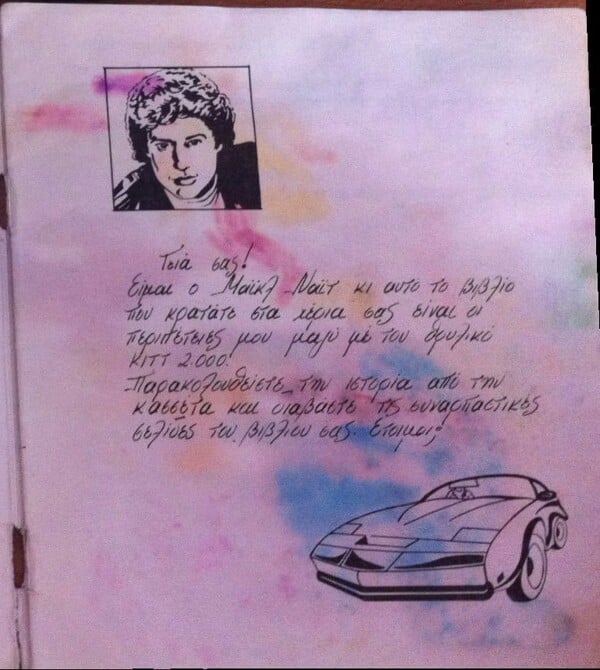 Γειά σας!
Είμαι ο Μάϊκλ Νάϊτ κι αυτό το βιβλίο
που κρατάτε στα χέρια σας είναι οι
περιπέτειες μου μαζύ μέ τον θρυλικό
ΚΙΤΤ 2.000.
Παρακολουθείστε την ιστορία από την
κασσέτα και διαβάστε τις συναρπαστικές
σελίδες του βιβλίου σας. Έτοιμοι;